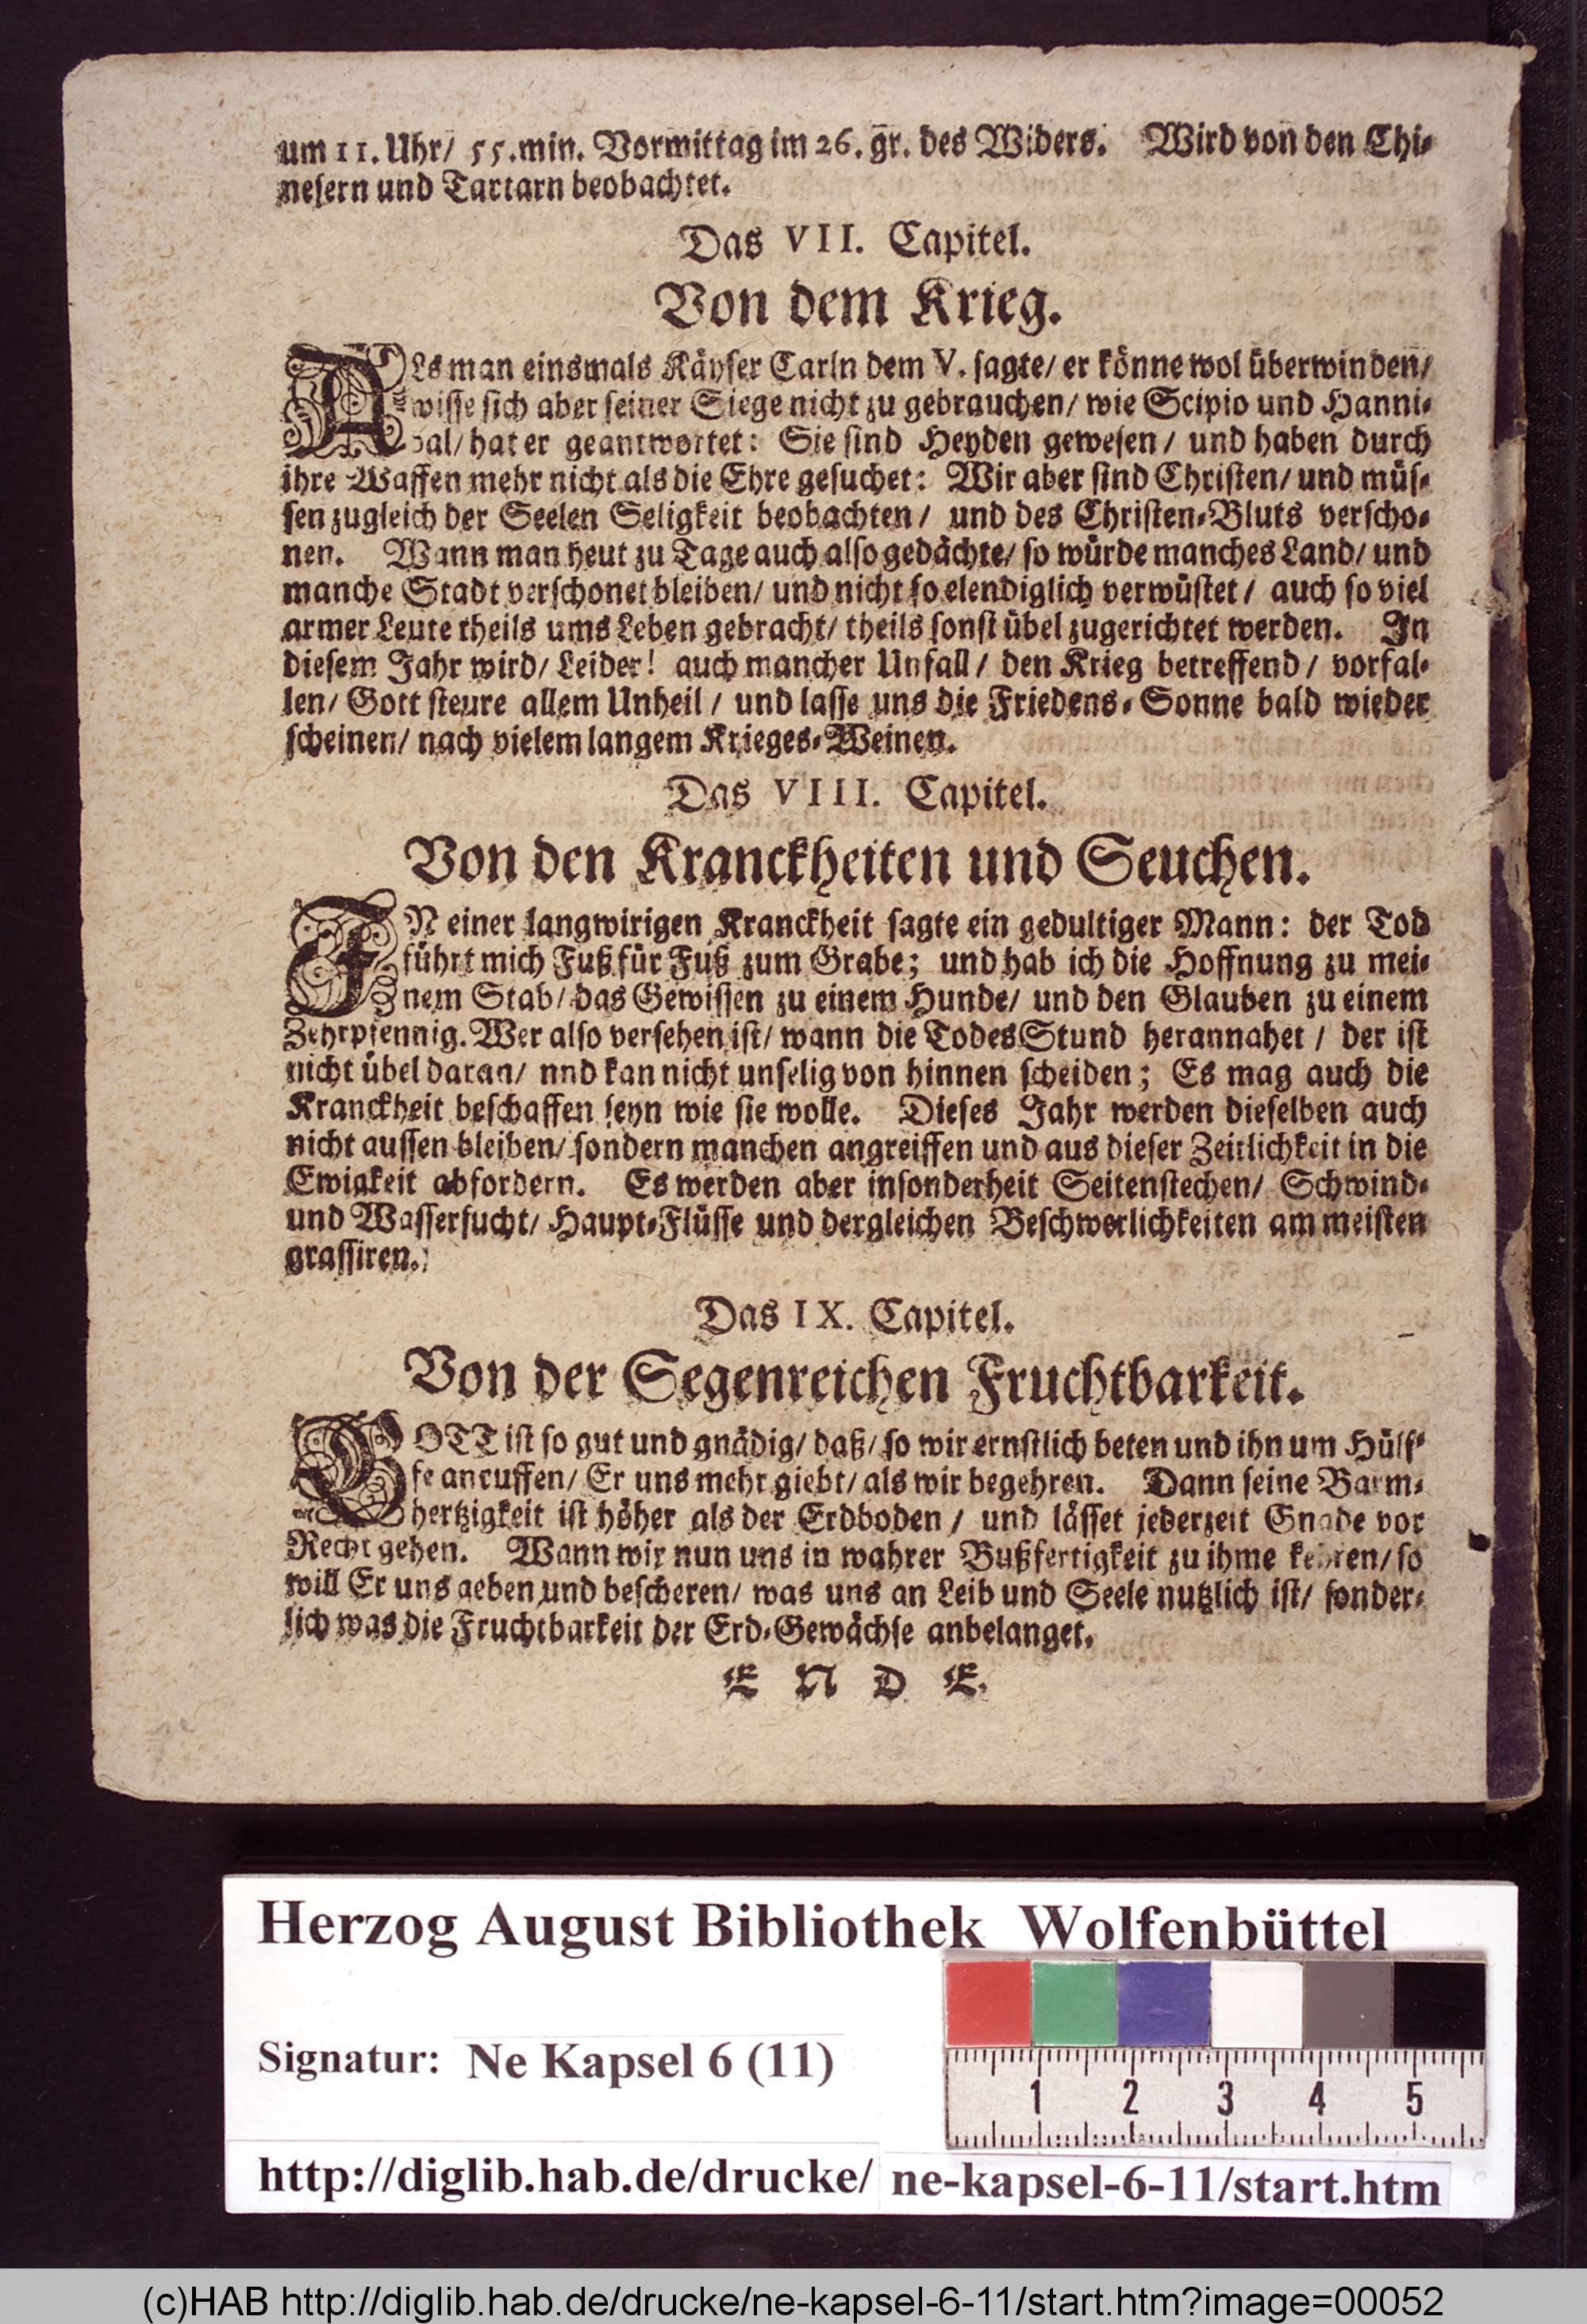 um 11. Uhr/ 55. min. Vormittag im 26. gr. des Widers. Wird von den Chi-
nesern und Tartarn beobachtet.
Das VII. Capitel.
Von dem Krieg.
ALs man einsmals Käyser Carln dem V. sagte/ er könne wol überwinden/
wisse sich aber seiner Siege nicht zu gebrauchen/ wie Scipio und Hanni-
bal/ hat er geantwortet: Sie sind Heyden gewesen/ und haben durch
ihre Waffen mehr nicht als die Ehre gesuchet: Wir aber sind Christen/ und müs-
sen zugleich der Seelen Seligkeit beobachten/ und des Christen-Bluts verscho-
nen. Wann man heut zu Tage auch also gedächte/ so würde manches Land/ und
manche Stadt verschonet bleiben/ und nicht so elendiglich verwüstet/ auch so viel
armer Leute theils ums Leben gebracht/ theils sonst übel zugerichtet werden. In
diesem Jahr wird/ Leider! auch mancher Unfall/ den Krieg betreffend/ vorfal-
len/ Gott steure allem Unheil/ und lasse uns die Friedens-Sonne bald wieder
scheinen/ nach vielem langem Krieges-Weinen.
Das VIII. Capitel.
Von den Kranckheiten und Seuchen.
IN einer langwirigen Kranckheit sagte ein gedultiger Mann: der Tod
führt mich Fuß für Fuß zum Grabe; und hab ich die Hoffnung zu mei-
nem Stab/ das Gewissen zu einem Hunde/ und den Glauben zu einem
Zehrpfennig. Wer also versehen ist/ wann die TodesStund herannahet/ der ist
nicht übel daran/ nnd kan nicht unselig von hinnen scheiden; Es mag auch die
Kranckheit beschaffen seyn wie sie wolle. Dieses Jahr werden dieselben auch
nicht aussen bleiben/ sondern manchen angreiffen und aus dieser Zeitlichkeit in die
Ewigkeit abfordern. Es werden aber insonderheit Seitenstechen/ Schwind-
und Wassersucht/ Haupt-Flüsse und dergleichen Beschwerlichkeiten am meisten
grassiren.
Das IX. Capitel.
Von der Segenreichen Fruchtbarkeit.
GOTT ist so gut und gnädig/ daß/ so wir ernstlich beten und ihn um Hülf-
fe anruffen/ Er uns mehr giebt/ als wir begehren. Dann seine Barm-
hertzigkeit ist höher als der Erdboden/ und lässet jederzeit Gnade vor
Recht gehen. Wann wir nun uns in wahrer Bußfertigkeit zu ihme kehren/ so
will Er uns geben und bescheren/ was uns an Leib und Seele nutzlich ist/ sonder-
lich was die Fruchtbarkeit der Erd-Gewächse anbelanget.
E N D E.
Herzog August Bibliothek Wolfenbüttel
Signatur: Ne Kapsel 6 (11)
1 2 3 4 5
http://diglib.hab.de/drucke/ ne-kapsel-6-11/start.htm
(c)HAB http://diglib.hab.de/drucke/ne-kapsel-6-11/start.htm?image=00052